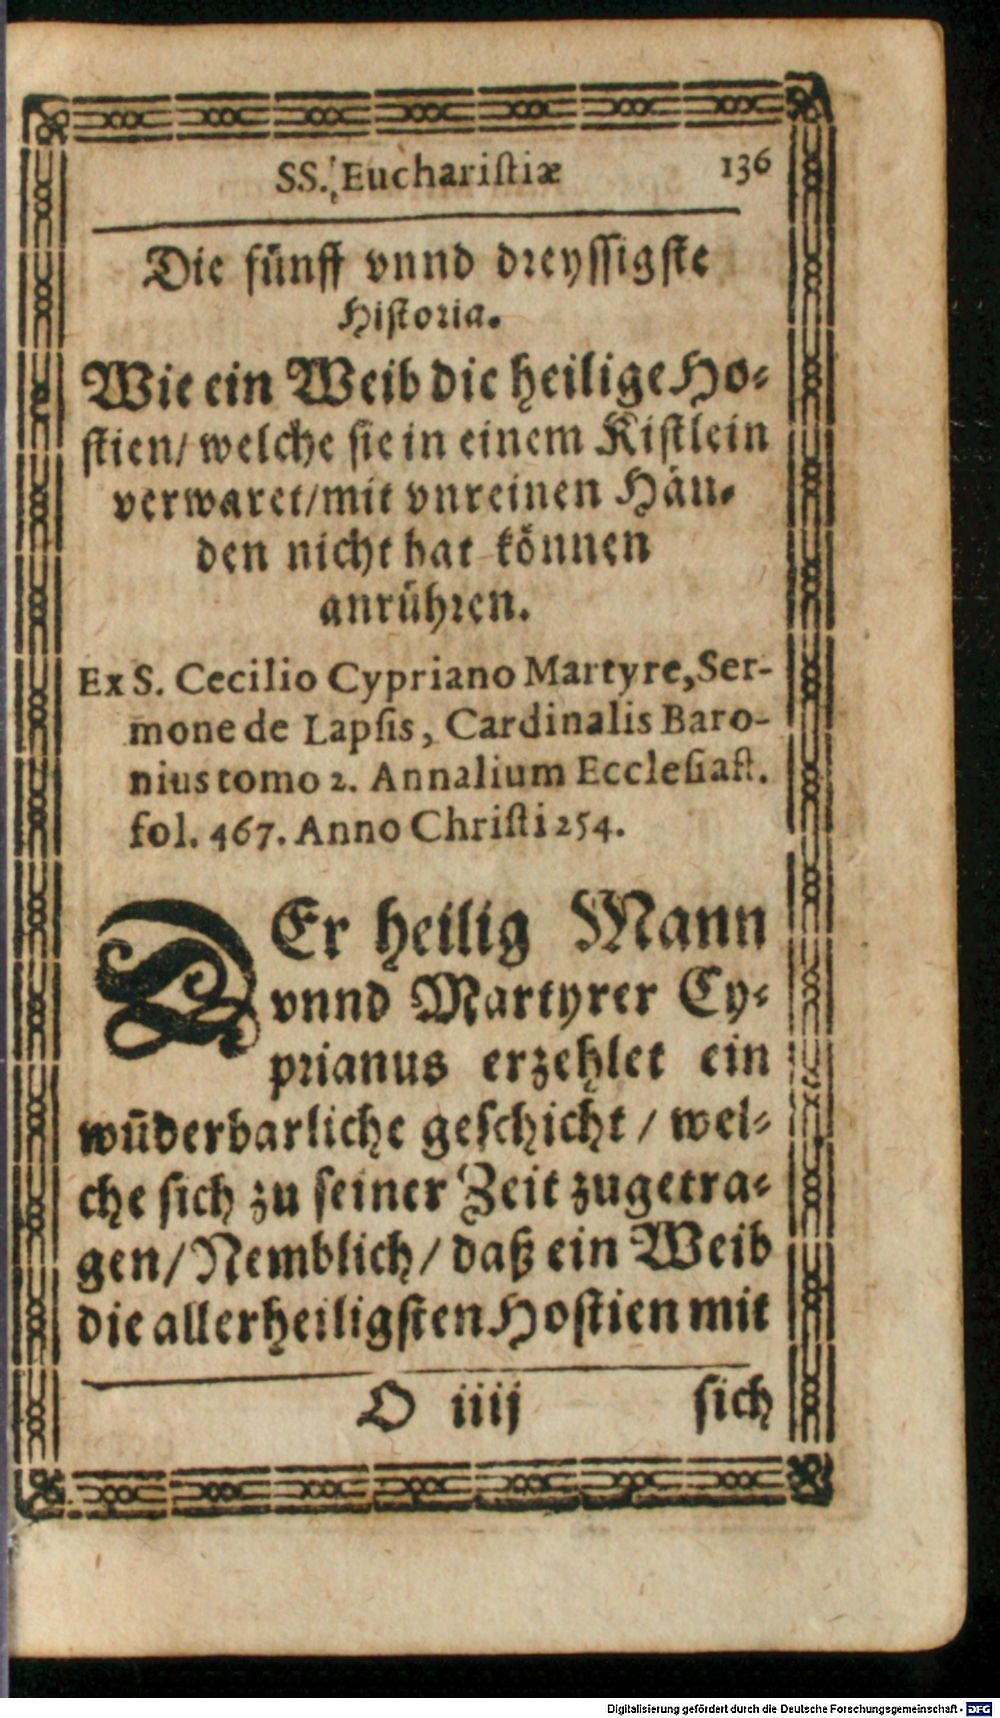 SS. Euchariſtiæ 136
Die fünff vnnd dreyſſigſte
Hiſtoria.
Wie ein Weib die heilige Ho-
ſtien/ welche ſie in einem Kiſtlein
verwaret/mit vnreinen Hän-
den nicht hat können
anrühren.
Ex S. Cecilio Cypriano Martyre, Ser-
mone de Lapſis, Cardinalis Baro-
nius tomo 2. Annalium Eccleſiaſt.
fol. 467. Anno Chriſti 254.
DEr heilig Mann
vnnd Martyrer Cy-
prianus erzehlet ein
wūderbarliche geſchicht / wel-
che ſich zu ſeiner Zeit zugetra-
gen/ Nemblich/ daß ein Weib
die allerheiligſten Hoſtien mit
O iiij ſich
Digitalisierung gefördert durch die Deutsche Forschungsgemeinschaft - DFG